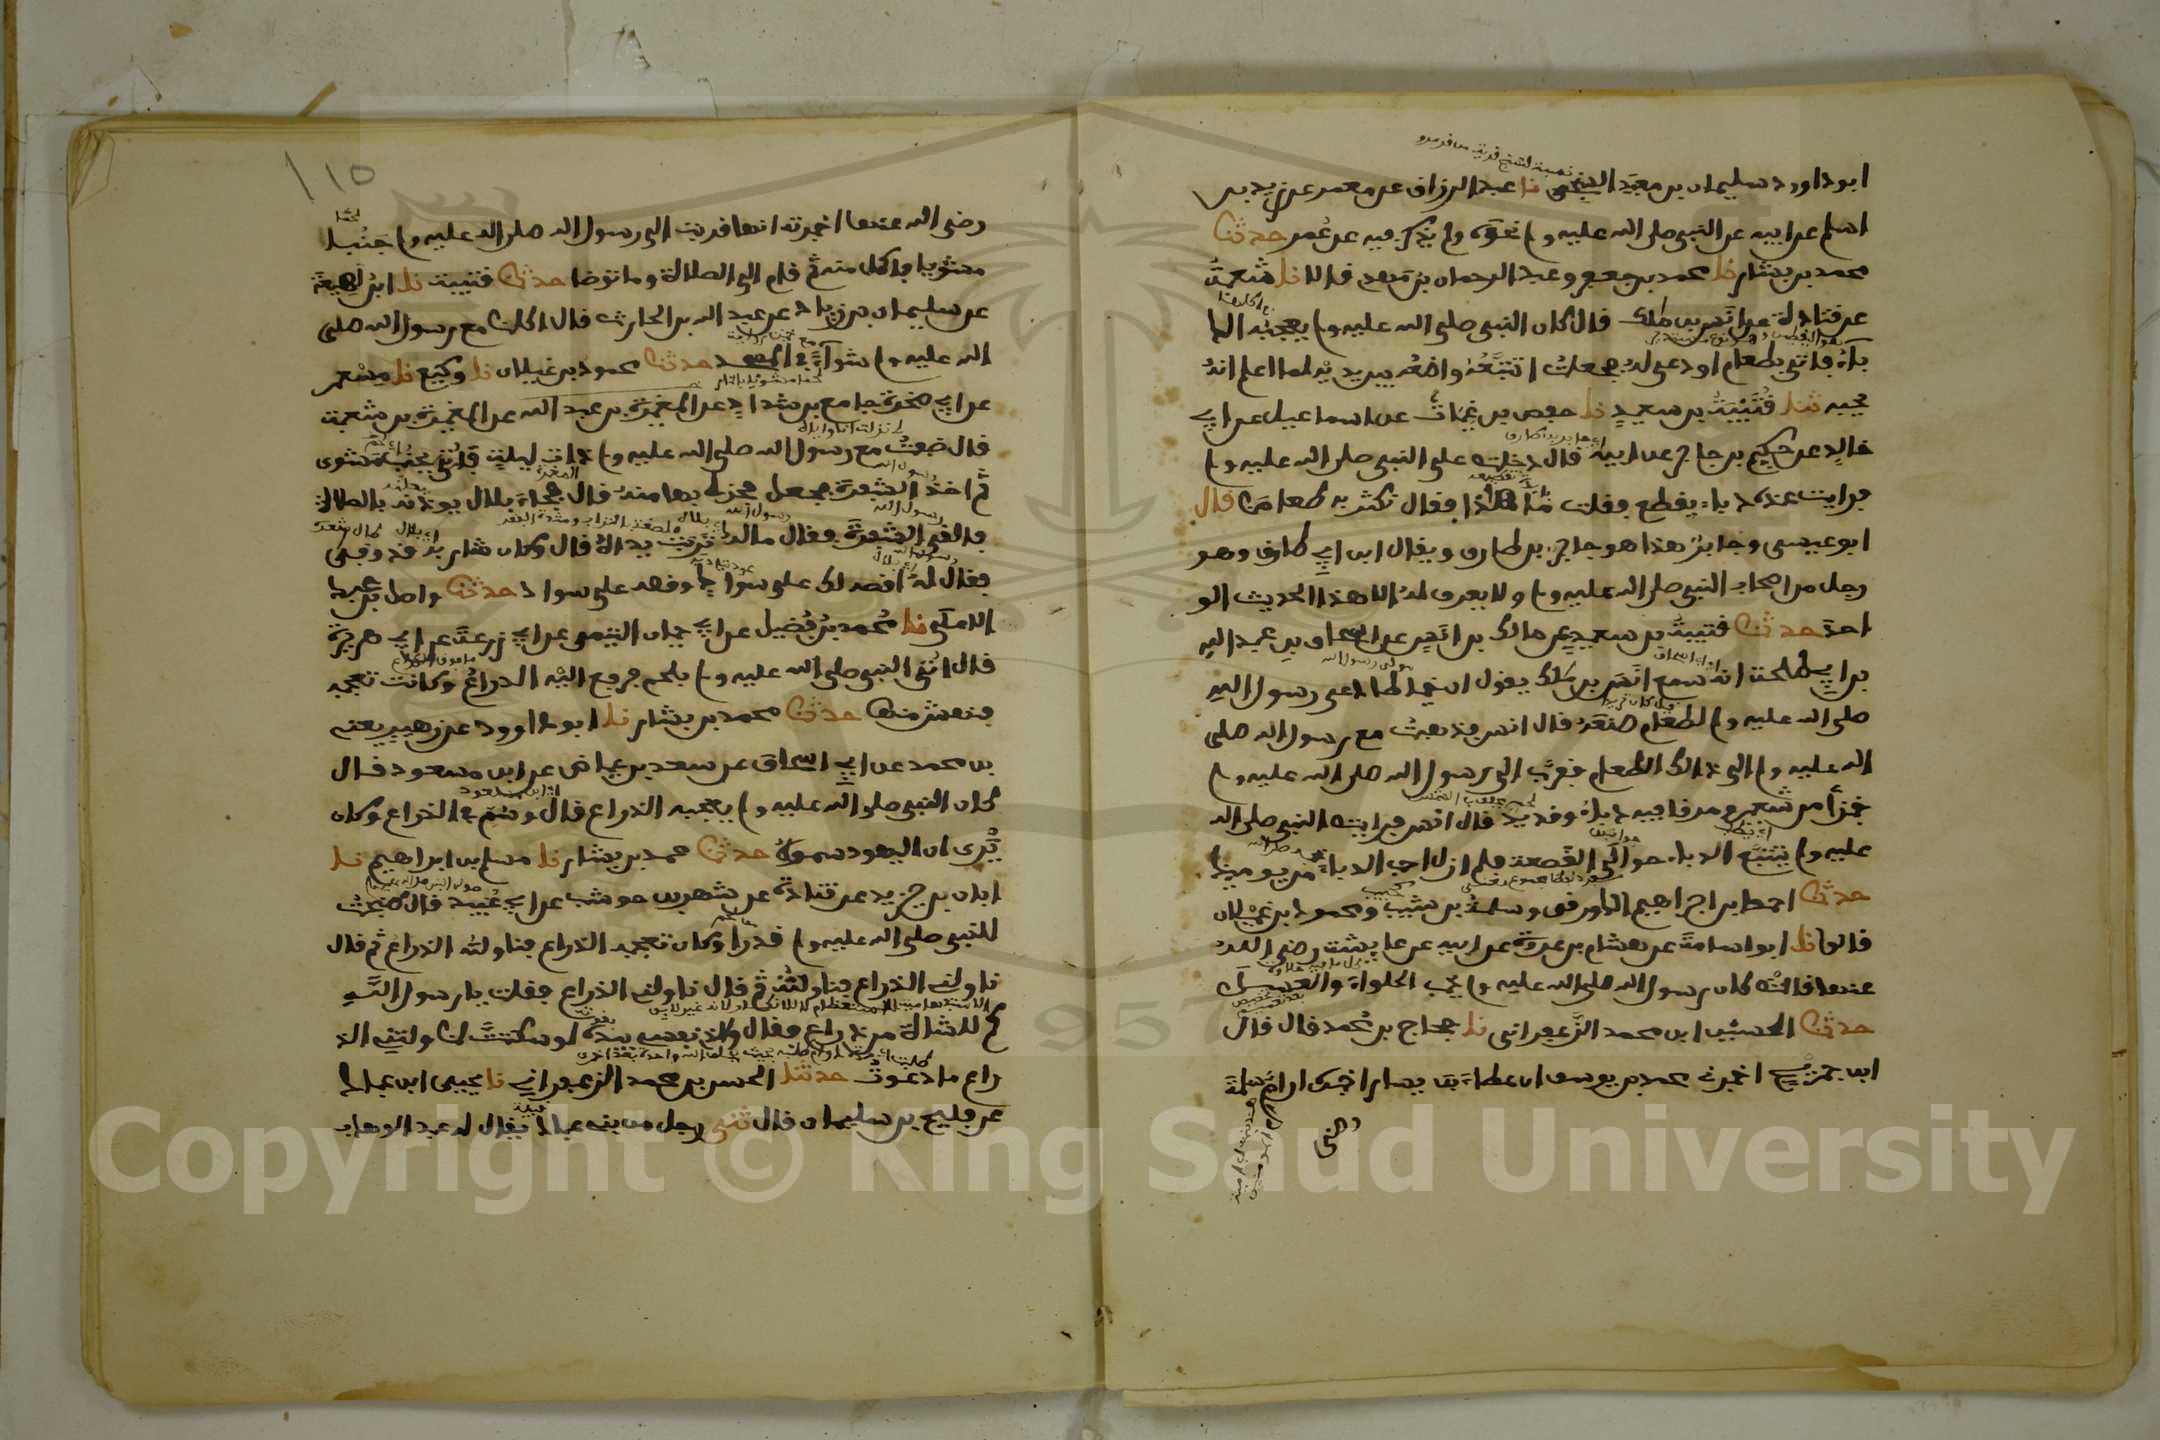 ابو داوود سليمان بن معبد السنجي نا عبد الرزاق عن معمر عن زيد بن
اسلم عن ابيه عن النبي صلى الله عليه وم نحوه ولم يذكر فيه عن عمر حدثنا
محمد بن بشار نا محمد بن جعفر وعبد الرحمان بن مهدي قالا نا شعبة
عن قتادة عن انس بن ملك قال كان النبي صلى الله عليه وم يعجبه الد
بآء فاتي بطعام او دعي له فجعلت اتتبعه واضعه بين يديه لما اعلم انه
يحبه ثنا قتيبة بن سعيد نا حفص بن غياث عن اسماعيل عن ابي
خالد عن حكيم بن جابر عن ابيه قال دخلت على النبي صلى الله عليه وم
فرايت عنده دباء يقطع فقلت ما هذا فقال نكثر به طعامنا قال
ابو عيسى وجابر هذا هو جابر بن طارق ويقال ابن ابي طارق وهو
رجل من اصحاب النبي صلى الله عليه وم ولا يعرف له الا هذا الحديث الو
احد حدثنا قتيبة بن سعيد عن مالك بن انس عن اسحاق بن عبد الله
بن ابي طلحة انه سمع انس بن ملك يقول ان خياطا دعى رسول الله
صلى الله عليه وم لطعام صنعه قال انس فذهبت مع رسول الله صلى
الله عليه وم الى ذالك الطعام فقرب الى رسول الله صلى الله عليه وم
خبزا من شعير ومرقا فيه دباء وقديد قال انس فرايت النبي صلى الله
عليه وم يتتبع الدباء حوالي القصعة فلم ازل احب الدباء من يوميذ
حدثنا احمد بن ابراهيم الدورقي وسلمة بن شبيب ومحمود بن غيلان
قالوا نا ابو اسامة عن هشام بن عروة عن ابيه عن عايشة رضي الله
عنها قالت كان رسول الله صلى الله عليه وم يحب الحلواء والعسل
حدثنا الحسن ابن محمد الزعفراني نا حجاج بن محمد قال قال
ابن جريج اخبرني محمد بن يوسف ان عطاء بن يسار اخبره ان ام سلمة
رضي
١١٥
رضي الله عنها اخبرته انها قربت الى رسول الله صلى الله عليه وم جنبا
مشويا فاكل منه ثم قام الى الصلاة وما توضا حدثنا قتيبة نا ابن لهيعة
عن سليمان بن زياد عن عبد الله بن الحارث قال اكلنا مع رسول الله صلى
الله عليه وم شواء في المسجد حدثنا محمود بن غيلان نا وكيع نا مسعر
عن ابي صخرة جامع بن شداد عن المغيرة بن عبد الله عن المغيرة بن شعبة
قال ضفت مع رسول الله صلى الله عليه وم ذات ليلة فاتي بجنب مشوي
ثم اخذ الشفرة فجعل يحز لي بها منه قال فجاء بلال يوذنه بالصلاة
فالقى الشفرة فقال ماله تربت يداه قال وكان شاربه قد وفى
فقال له اقصه لك على سواك او قصه على سواك حدثنا واصل بن عبد
الاعلى نا محمد بن فضيل عن ابي حيان التيمي عن ابي زرعة عن ابي هريرة
قال اتي النبي صلى الله عليه وم بلحم فرفع اليه الذراع وكانت تعجبه
فنهش منها حدثنا محمد بن بشار نا ابو داوود عن زهير يعني
بن محمد عن ابي اسحاق عن سعد بن عياض عن ابن مسعود قال
كان النبي صلى الله عليه وم يعجبه الذراع قال وسم في الذراع وكان
يرى ان اليهود سموه حدثنا محمد بن بشار نا مسلم بن ابراهيم نا
ابان بن يزيد عن قتادة عن شهر بن حوشب عن ابي عبيد قال طبخت
للنبي صلى الله عليه وم قدرا وكان تعجبه الذراع فناولته الذراع ثم قال
ناولني الذراع فناولته ثم قال ناولني الذراع فقلت يا رسول الله
كم للشاة من ذراع فقال والذي نفسي بيده لو سكتت لناولتني الذ
راع ما دعوت حدثنا الحسن بن محمد الزعفراني نا يحيى ابن عباد
عن فليح بن سليمان قال ثني رجل من بني عباد يقال له عبد الوهاب
Copyright © King Saud University
1957